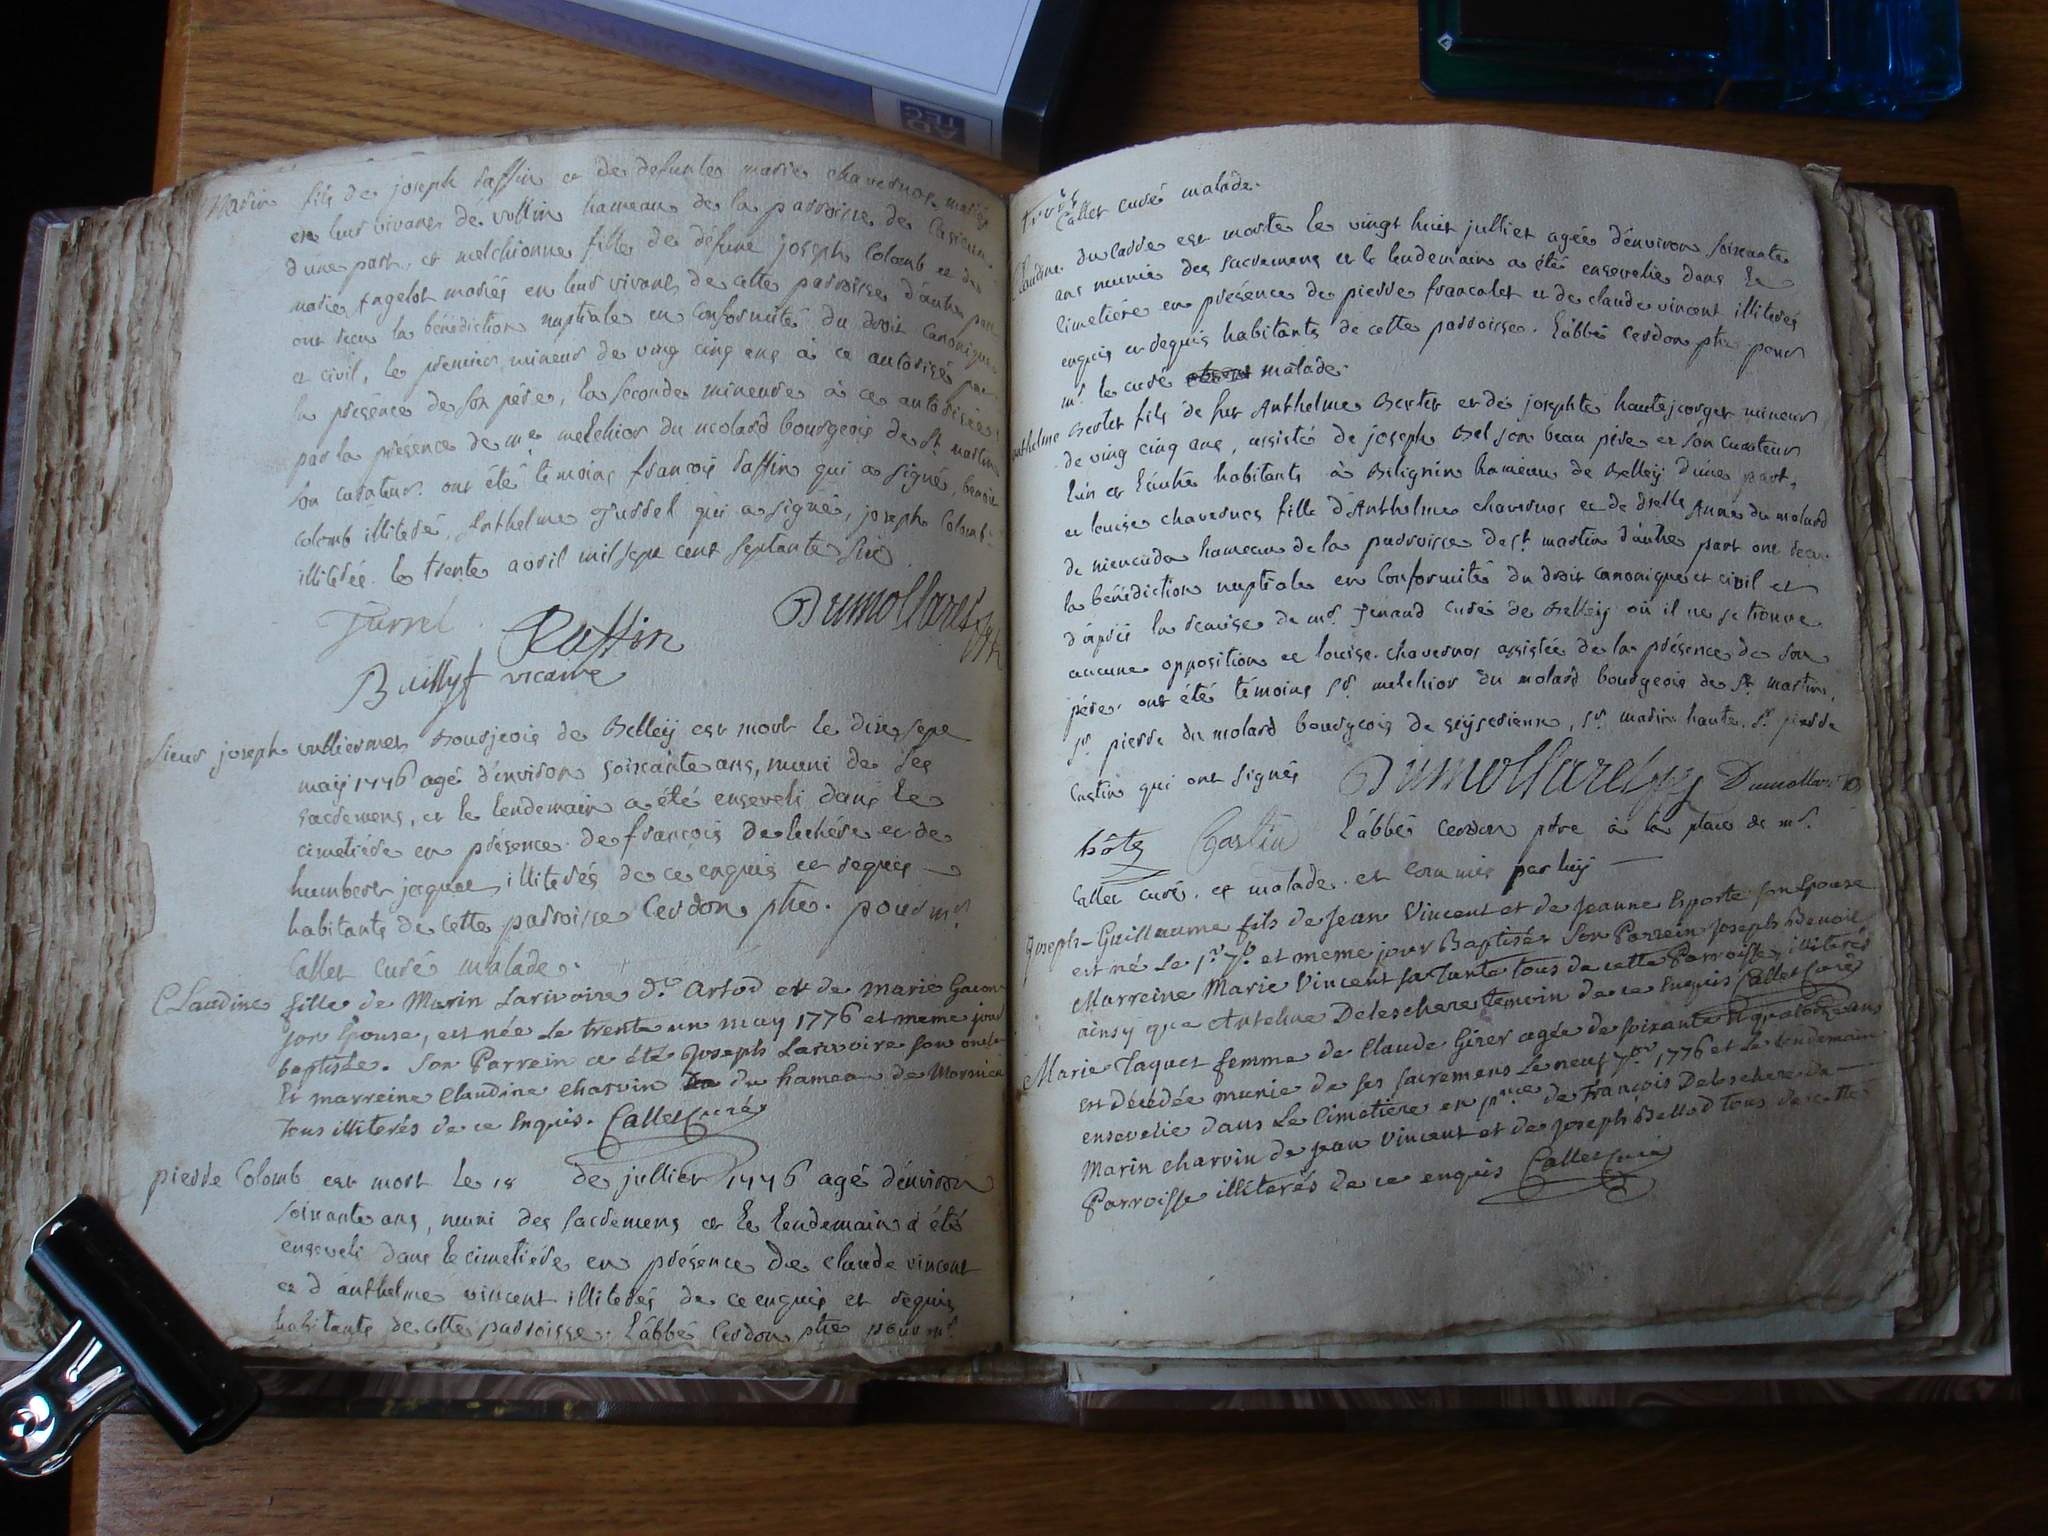 Marin fils de joseph Raffin et de defunte marie chavernos mariés
en leur vivans de vollin hameau de la parroisse de
d'une part, et melchionne fille de défunt joseph Colomb et de
marie fagelot mariés en leur vivant de cette parroisse d'autre part
ont recu la bénédiction nuptiale en conformité du droit canonique
et civil, le premier mineur de ving cinq ans à ce autorisé par
la présence de son père, la seconde mineure à ce autorisée
par la présence de me melchior du molard bourgeois de st martin
son curateur. ont été témoins françois Raffin qui a signé, benoit
colomb illiteré, Anthelme Turrel qui a signé, joseph Colomb
illiteré. le trente avril mil sept cent septante six
Turrel Raffin Dumollaret
Buillyt vicaire
Sieur joseph vulliermet Bourjeois de Belleÿ est mort le dix sept
maÿ 1776 agé d'environ soixante ans, muni de ses
sacremens, et le lendemain a été enseveli dans le
cimetière en présence de françois delechère et de
humbert jaquet illiterés de ce enquis et requis
habitants de cette parroisse Cerdon ptre. pour mr
Callet curé malade.
Claudine fille de Marin Larivoire dt Artod et de marie Gacon
son Epouse, est née le trente un may 1776 et meme jour
baptisée. Son Parrein a été Joseph Larivoire son oncle
Et marreine Claudine charvin du hameau de Mornieu
tous illiterés de ce Enquis. Callet curé
pierre Colomb est mort le 18 de jullier 1776 agé d'environ
soixante ans, muni des sacremens et le lendemain a été
enseveli dans le cimetière en présence de claude vincent
et d'anthelme vincent illiterés de ce enquis et requis
habitants de cette parroisse. l'abbé Cerdon ptre pour mr
Callet curé malade.
Claudine Ducarre est morte le vingt huit jullier agée d'environ soixante
ans munie des sacremens et le lendemain a été ensevelie dans le
cimetière en présence de pierre francalet et de claude vincent illiterés
enquis et requis habitants de cette parroisse. l'abbé Cerdon ptre pour
mr le curé malade.
anthelme Berlet fils de feu Anthelme Berlet et de josephte hautejorget mineur
de ving cinq ans, assisté de joseph Bel son beau père et son curateur
l'un et l'autre habitants à Bilignin hameau de Belleÿ d'une part,
et louise chavernos fille d'Anthelme chavernos et de delle Anne du molard
de hameau de la parroisse de st martin d'autre part ont recu
la bénédiction nuptiale en conformité du droit canonique et civil et
d'après la remise de mr Jenaud curé de Belleÿ où il ne se trouve
aucune opposition et louise chavernos assistée de la présence de son
père. ont été témoins sr melchior du molard bourgeois de st martin,
sr pierre du molard bourgeois de seÿserieux, sr marin haute, sr pierre
Castin qui ont signés Dumollaret Dumollard
hôte Castin l'abbé Cerdon ptre à la place de mr
Callet curé. et malade. et commis par luÿ
Joseph-Guillaume fils de Jean Vincent et de Jeanne Esporte son Epouse
est né le 1r 7b et meme jour Baptisé. Son Parrein Joseph Benoit
Marreine Marie Vincent sa Tante tous de cette Parroisse, illiterés
ainsy que Antelme Deleschere temoin de ce Enquis Callet curé
Marie Jaquet femme de Claude Girer agée de soixante et quatorze ans
est décédée munie de ses sacremens le neuf 7bre 1776 et le lendemain
ensevelie dans le Cimetiere en pnce de François Deleschere de
Marin charvin de Jean Vincent et de Joseph Bellod tous de cette
Parroisse illiterés de ce enquis Callet curé